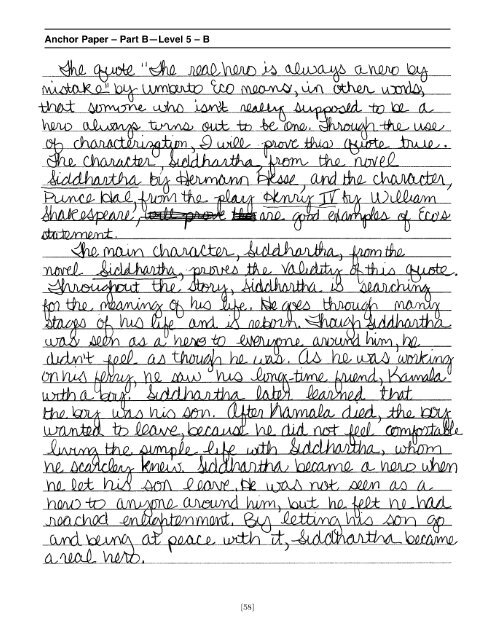 Anchor Paper – Part B—Level 5 – B
The quote "The real hero is always a hero by
mistake" by Umberto Eco means, in other words,
that somone who isn't really supposed to be a
hero always turns out to be one. Through the use
of characterization, I will prove this quote true.
The character, Siddhartha, from the novel
Siddhartha by Hermann Hesse, and the character,
Prince Hal, from the play Henry IV by William
Shakespeare, are good examples of Eco's
statement.
The main character, Siddhartha, from the
novel Siddhartha, proves the validity of this quote.
Throughout the story, Siddhartha is searching
for the meaning of his life. He goes through many
stages of his life and is reborn. Though Siddhartha
was seen as a hero to everyone around him, he
didn't feel as though he was. As he was working
on his ferry, he saw his long-time friend, Kamala
with a boy. Siddhartha later learned that
the boy was his son. After Kamala died, the boy
wanted to leave, because he did not feel comfortable
living the simple life with Siddhartha, whom
he scarcley knew. Siddhartha became a hero when
he let his son leave. He was not seen as a
hero to anyone around him, but he felt he had
reached enlightenment. By letting his son go
and being at peace with it, Siddhartha became
a real hero.
[58]